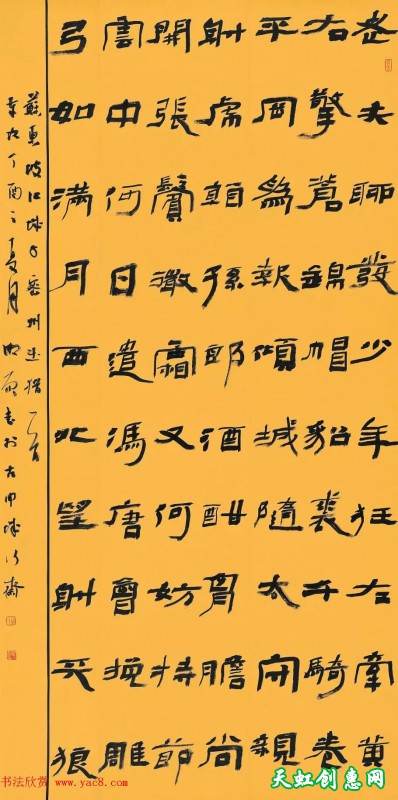 老夫聊發少年狂左牽黃
右擎蒼錦帽貂裘千騎卷
平岡為報傾城隨太守親
射虎看孫郎酒酣胸膽尚
開張鬢微霜又何妨持節
雲中何日遣馮唐會挽雕
弓如滿月西北望射天狼
蘇東坡江城子密州出獵一首
丁酉之夏月
书法欣赏 www.yac8.com
天虹创惠网